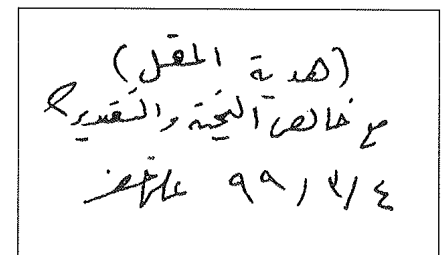 (هدية المقل)
مع خالص التحية والتقدير
٩٩/٣/٤